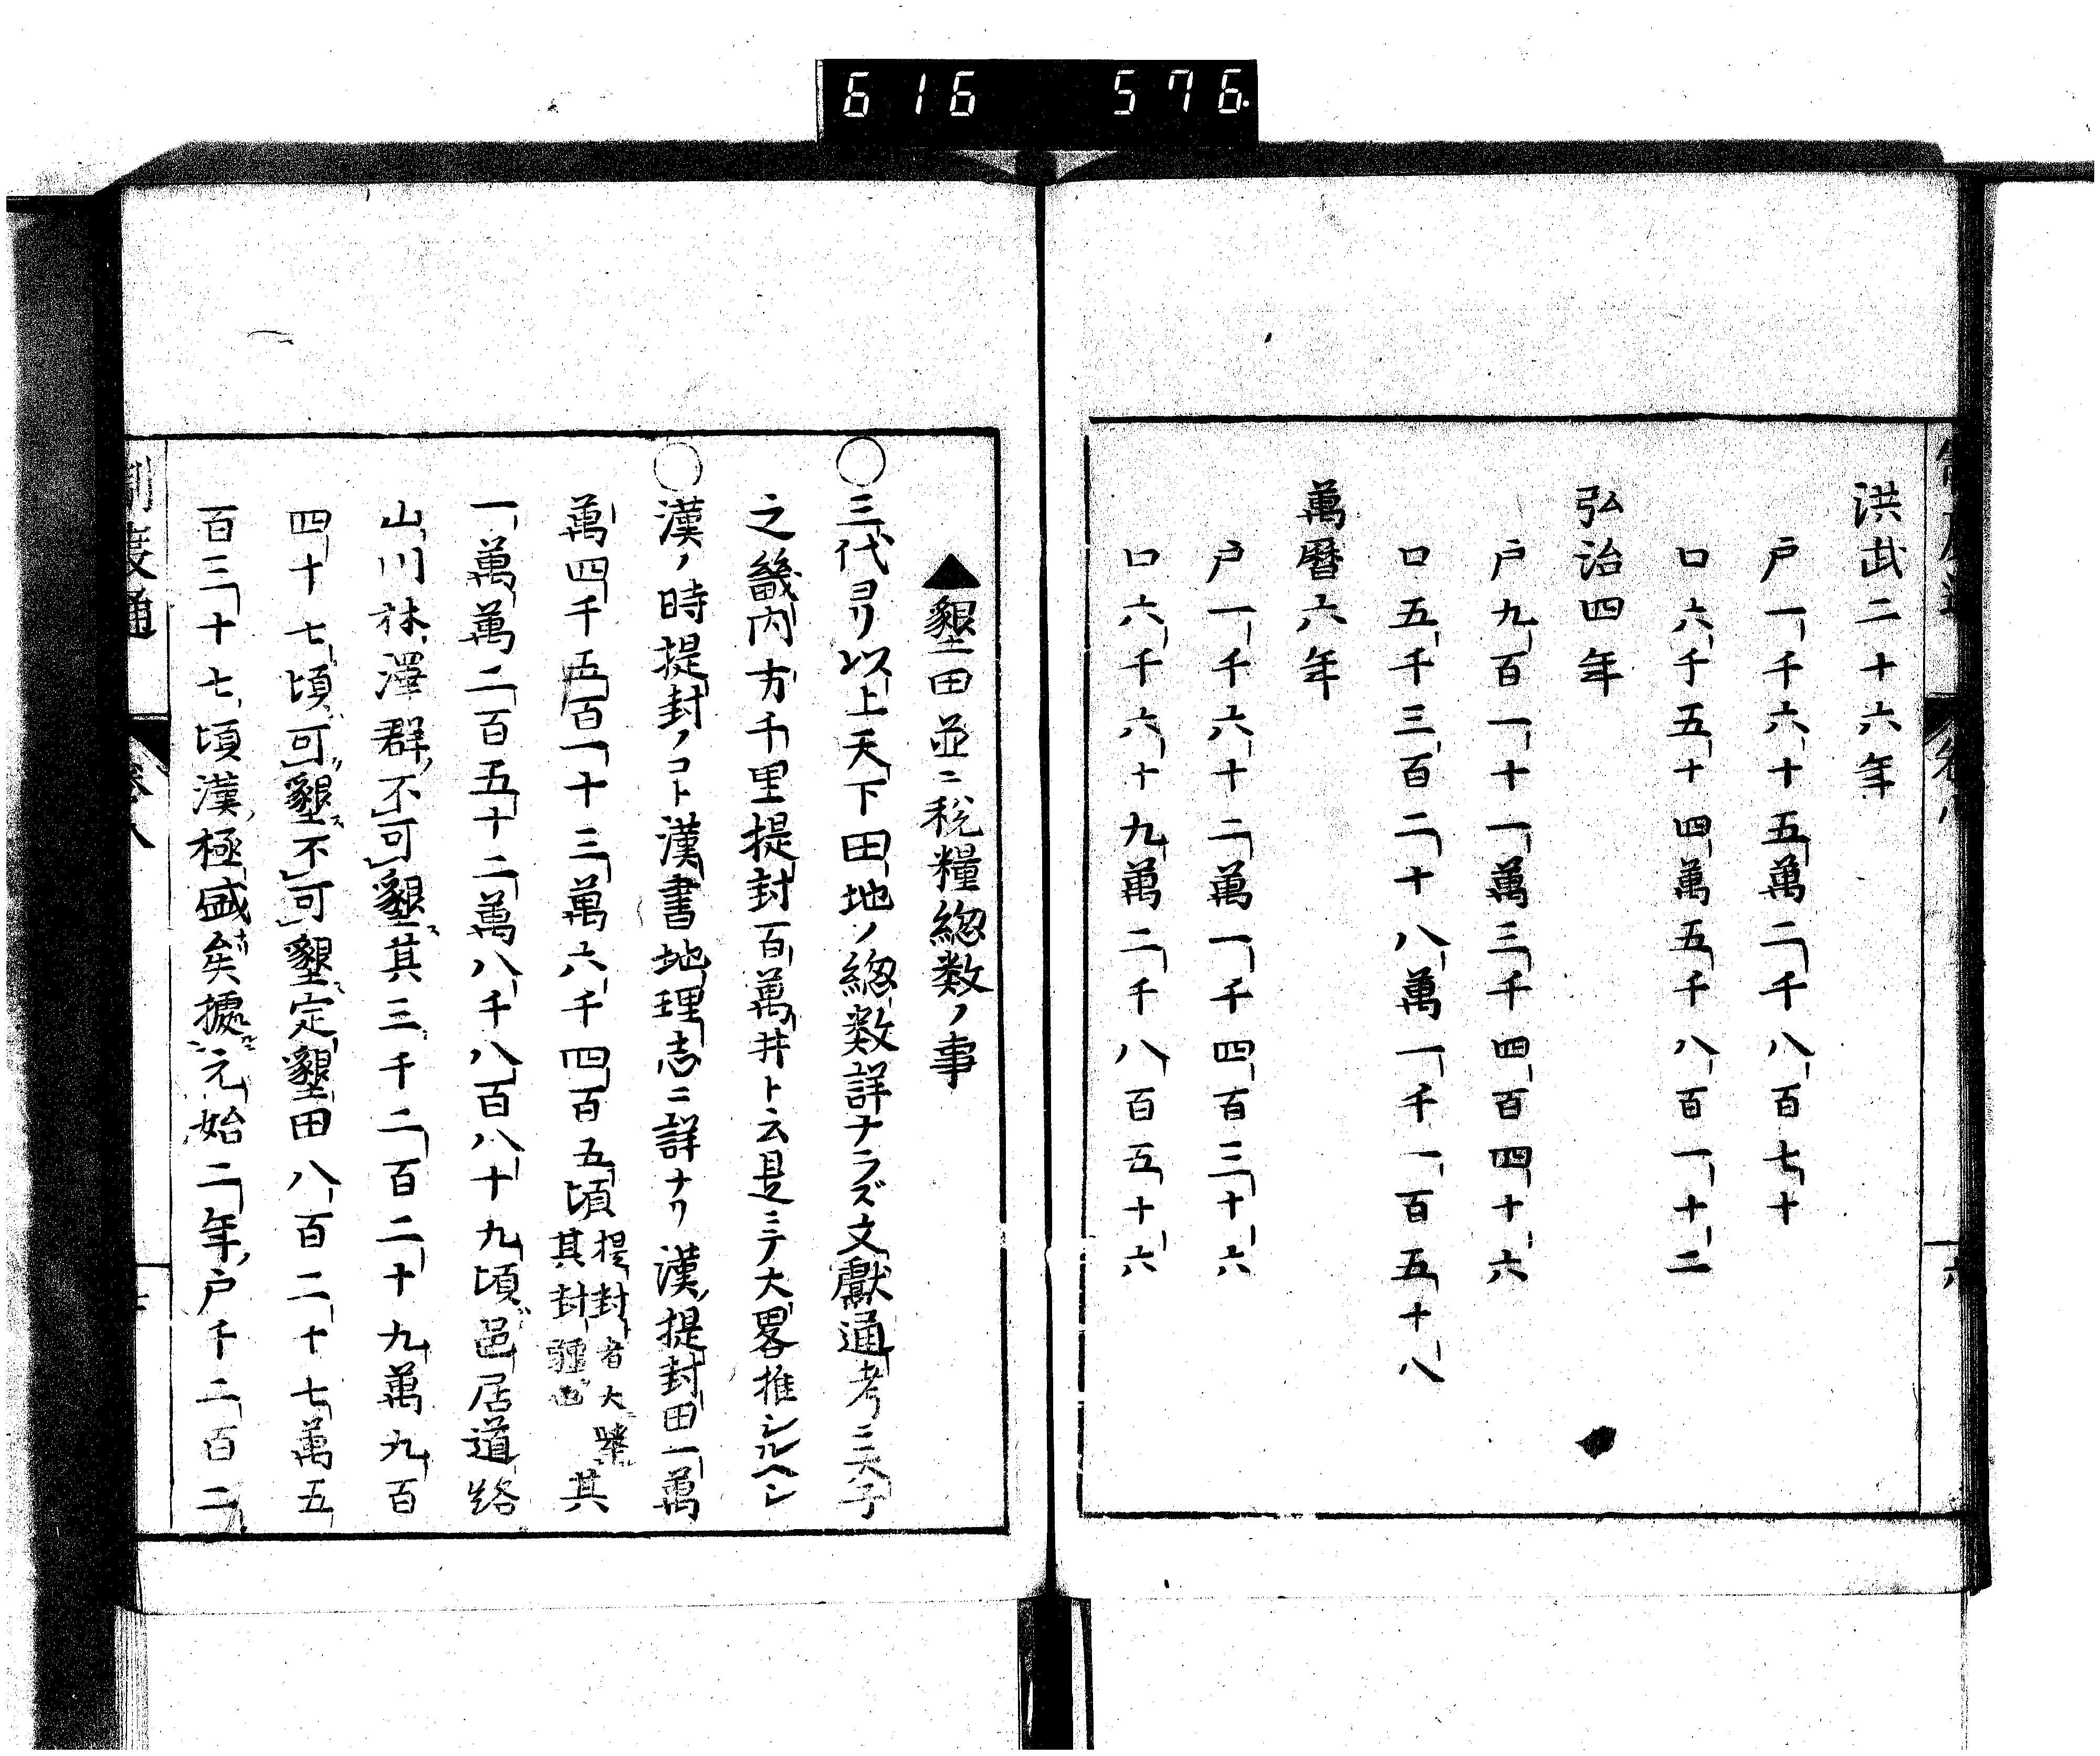 616 576
洪武二十六年
戸一千六十五萬二千八百七十
口六千五十四萬五千八百一十二
弘治四年
戸九百一十一萬三千四百四十六
口五千三百二十八萬一千一百五十八
萬曆六年
戸一千六十二萬一千四百三十六
口六千六十九萬二千八百五十六
▲墾田並ニ税糧緫数ノ事
〇三代ヨリ以上天下田地ノ緫数詳ナラズ文獻通考ニ天子
之畿内方千里提封百萬井ト云是ニテ大畧推シルヘシ
〇漢ノ時提封ノコト漢書地理志ニ詳ナリ漢ノ提封田一萬
萬四千五百一十三萬六千四百五頃提封者大擧其封疆也其
一萬萬二百五十二萬八千八百八十九頃邑居道路
山川林澤群不可墾其三千二百二十九萬九百
四十七頃可墾不可墾定墾田八百二十七萬五
百三十七頃漢極盛矣據元始二年戸千二百二
制度通 卷八